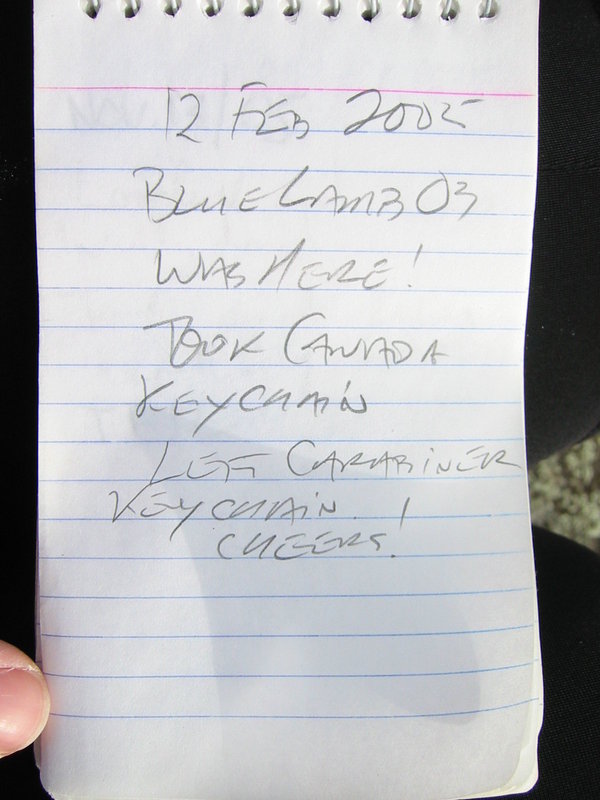 12 FEB 2005
BLUELAMB03
WAS HERE!
TOOK CANADA
KEYCHAIN
LEFT CARABINER
KEYCHAIN. !
CHEERS!